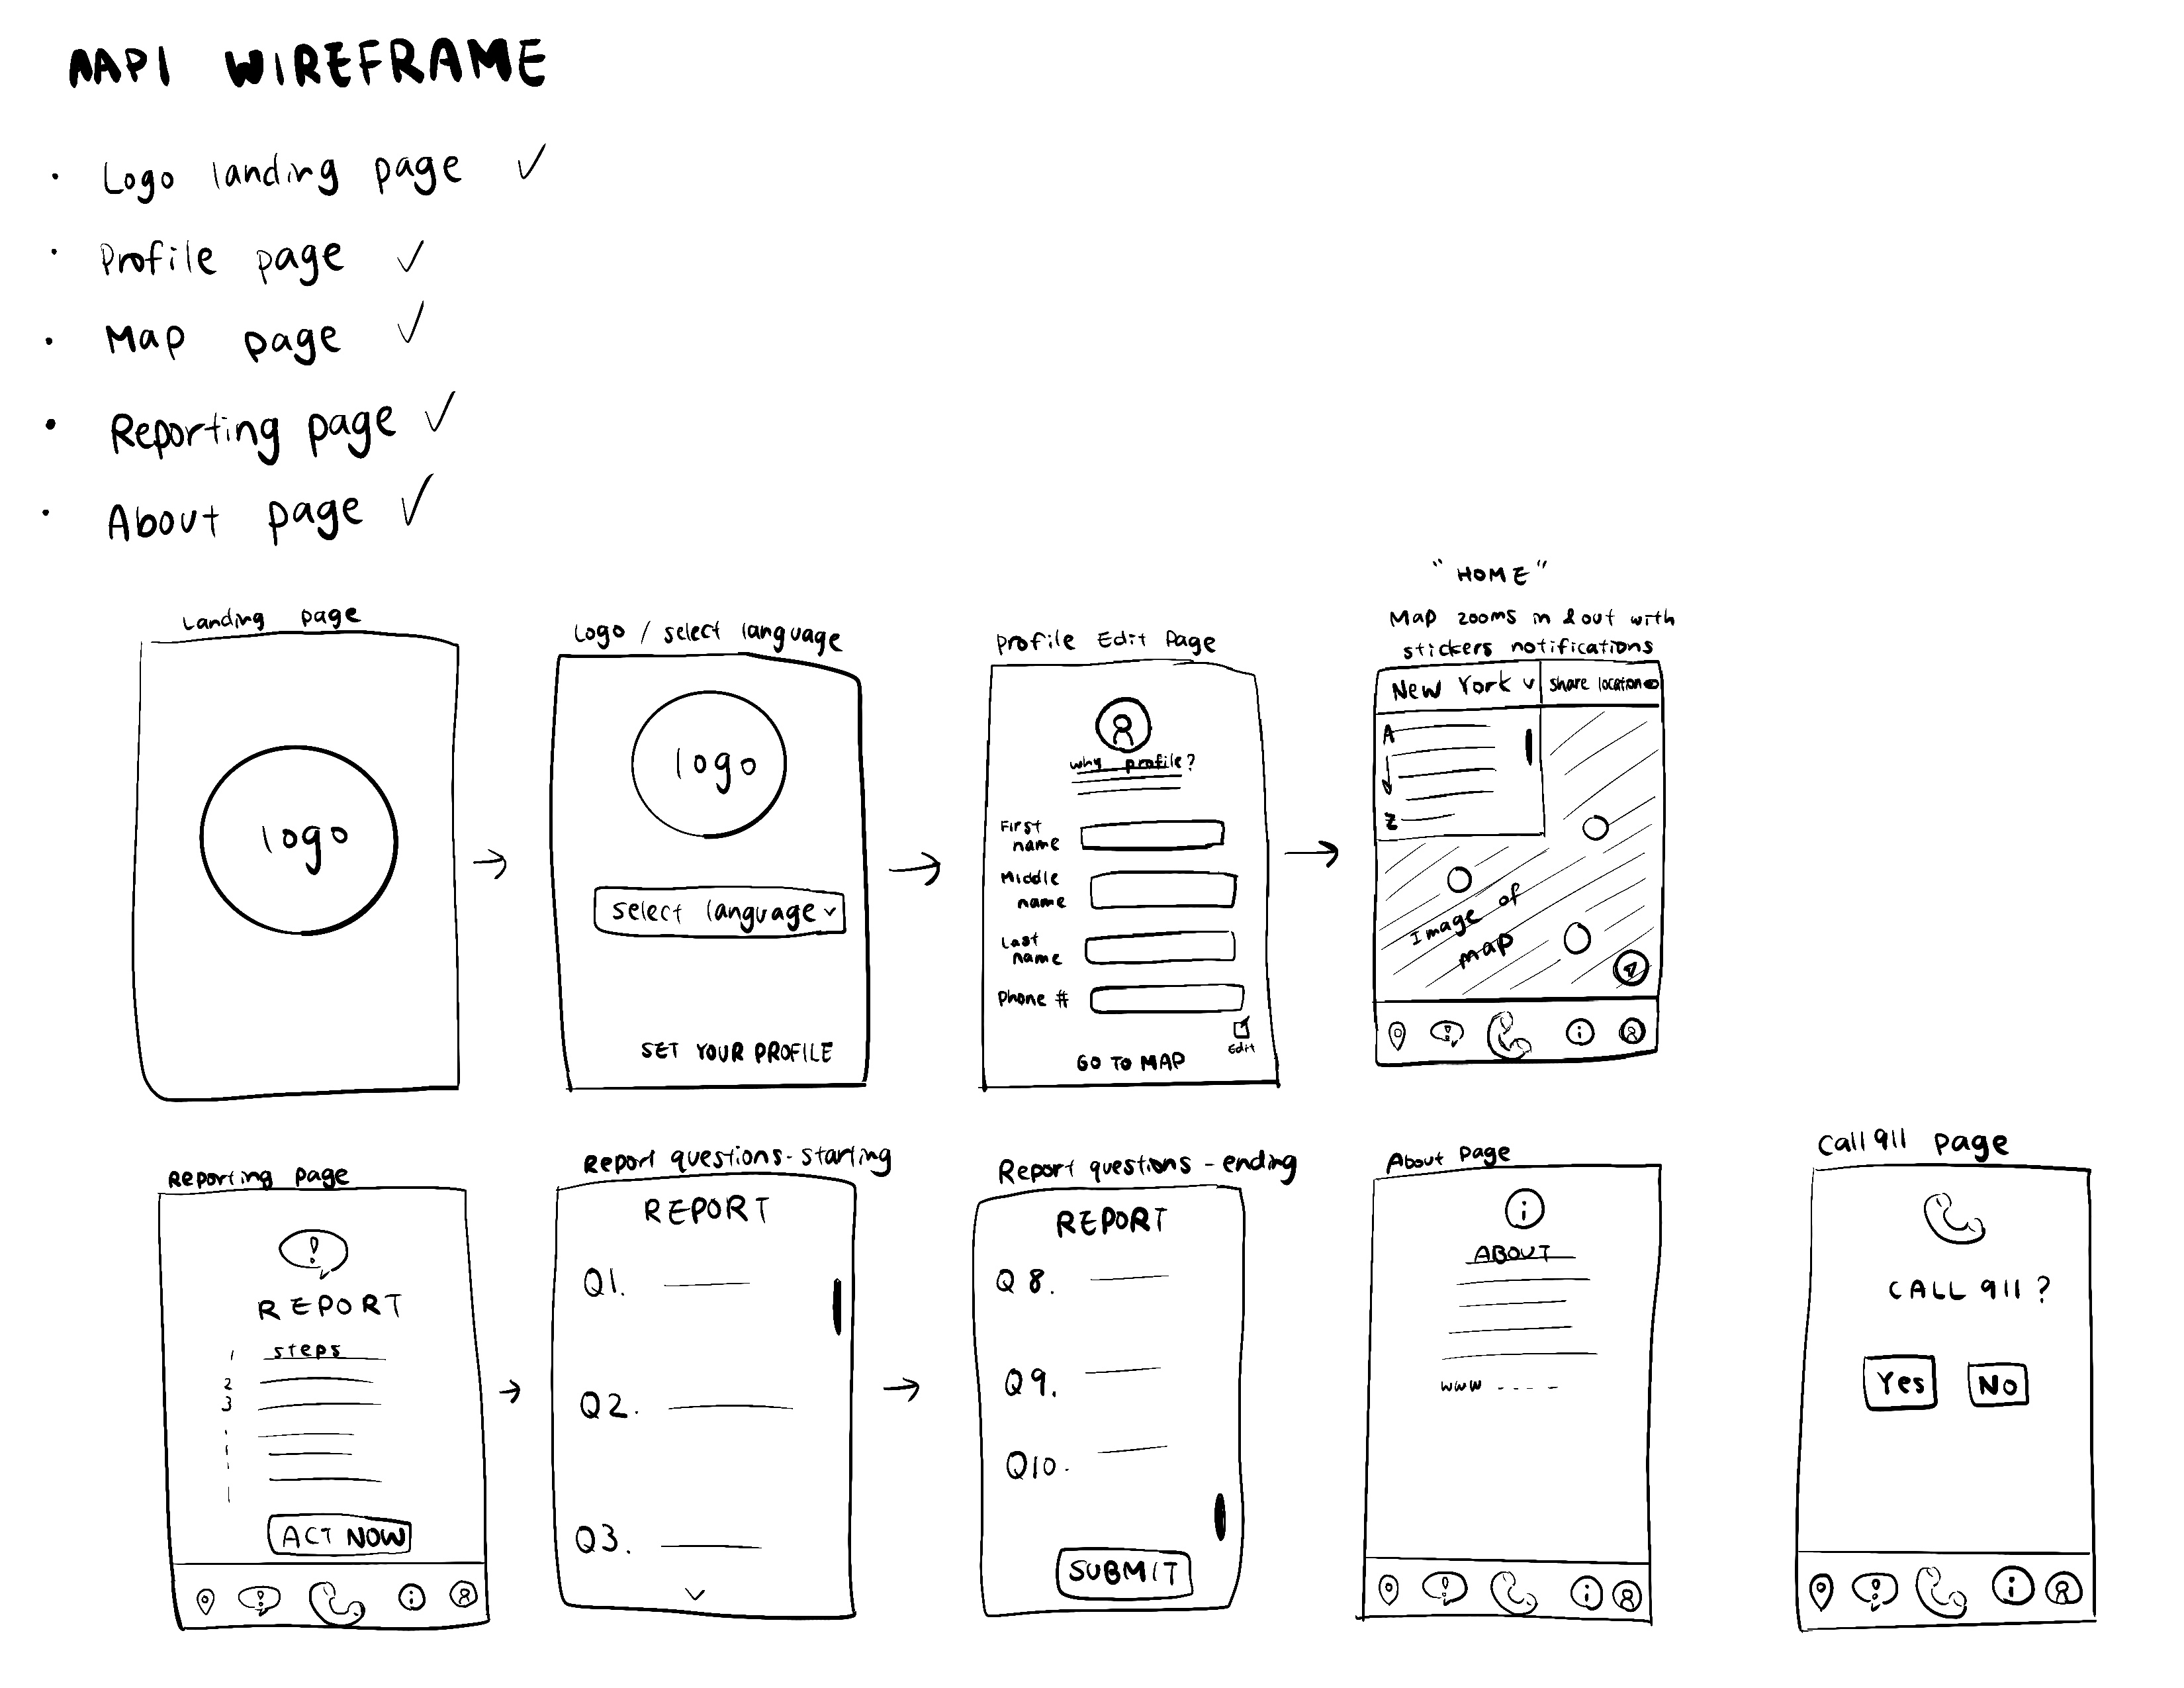 AAPI WIREFRAME
· Logo landing page ✓
· Profile page ✓
· Map page ✓
· Reporting page ✓
· About page ✓
Landing page
logo
Logo / select language
logo
select language
SET YOUR PROFILE
Profile Edit Page
why profile?
First
name
Middle
name
Last
name
Phone #
Edit
GO TO MAP
"HOME"
Map zooms in & out with
stickers notifications
New York
Share location
A
Z
Image of
map
Reporting page
!
REPORT
1 steps
2
3
ACT NOW
!
i
Report questions - starting
REPORT
Q1.
Q2.
Q3.
Report questions - ending
REPORT
Q8.
Q9.
Q10.
SUBMIT
About page
i
ABOUT
www ----
Call 911 page
CALL 911?
Yes
No